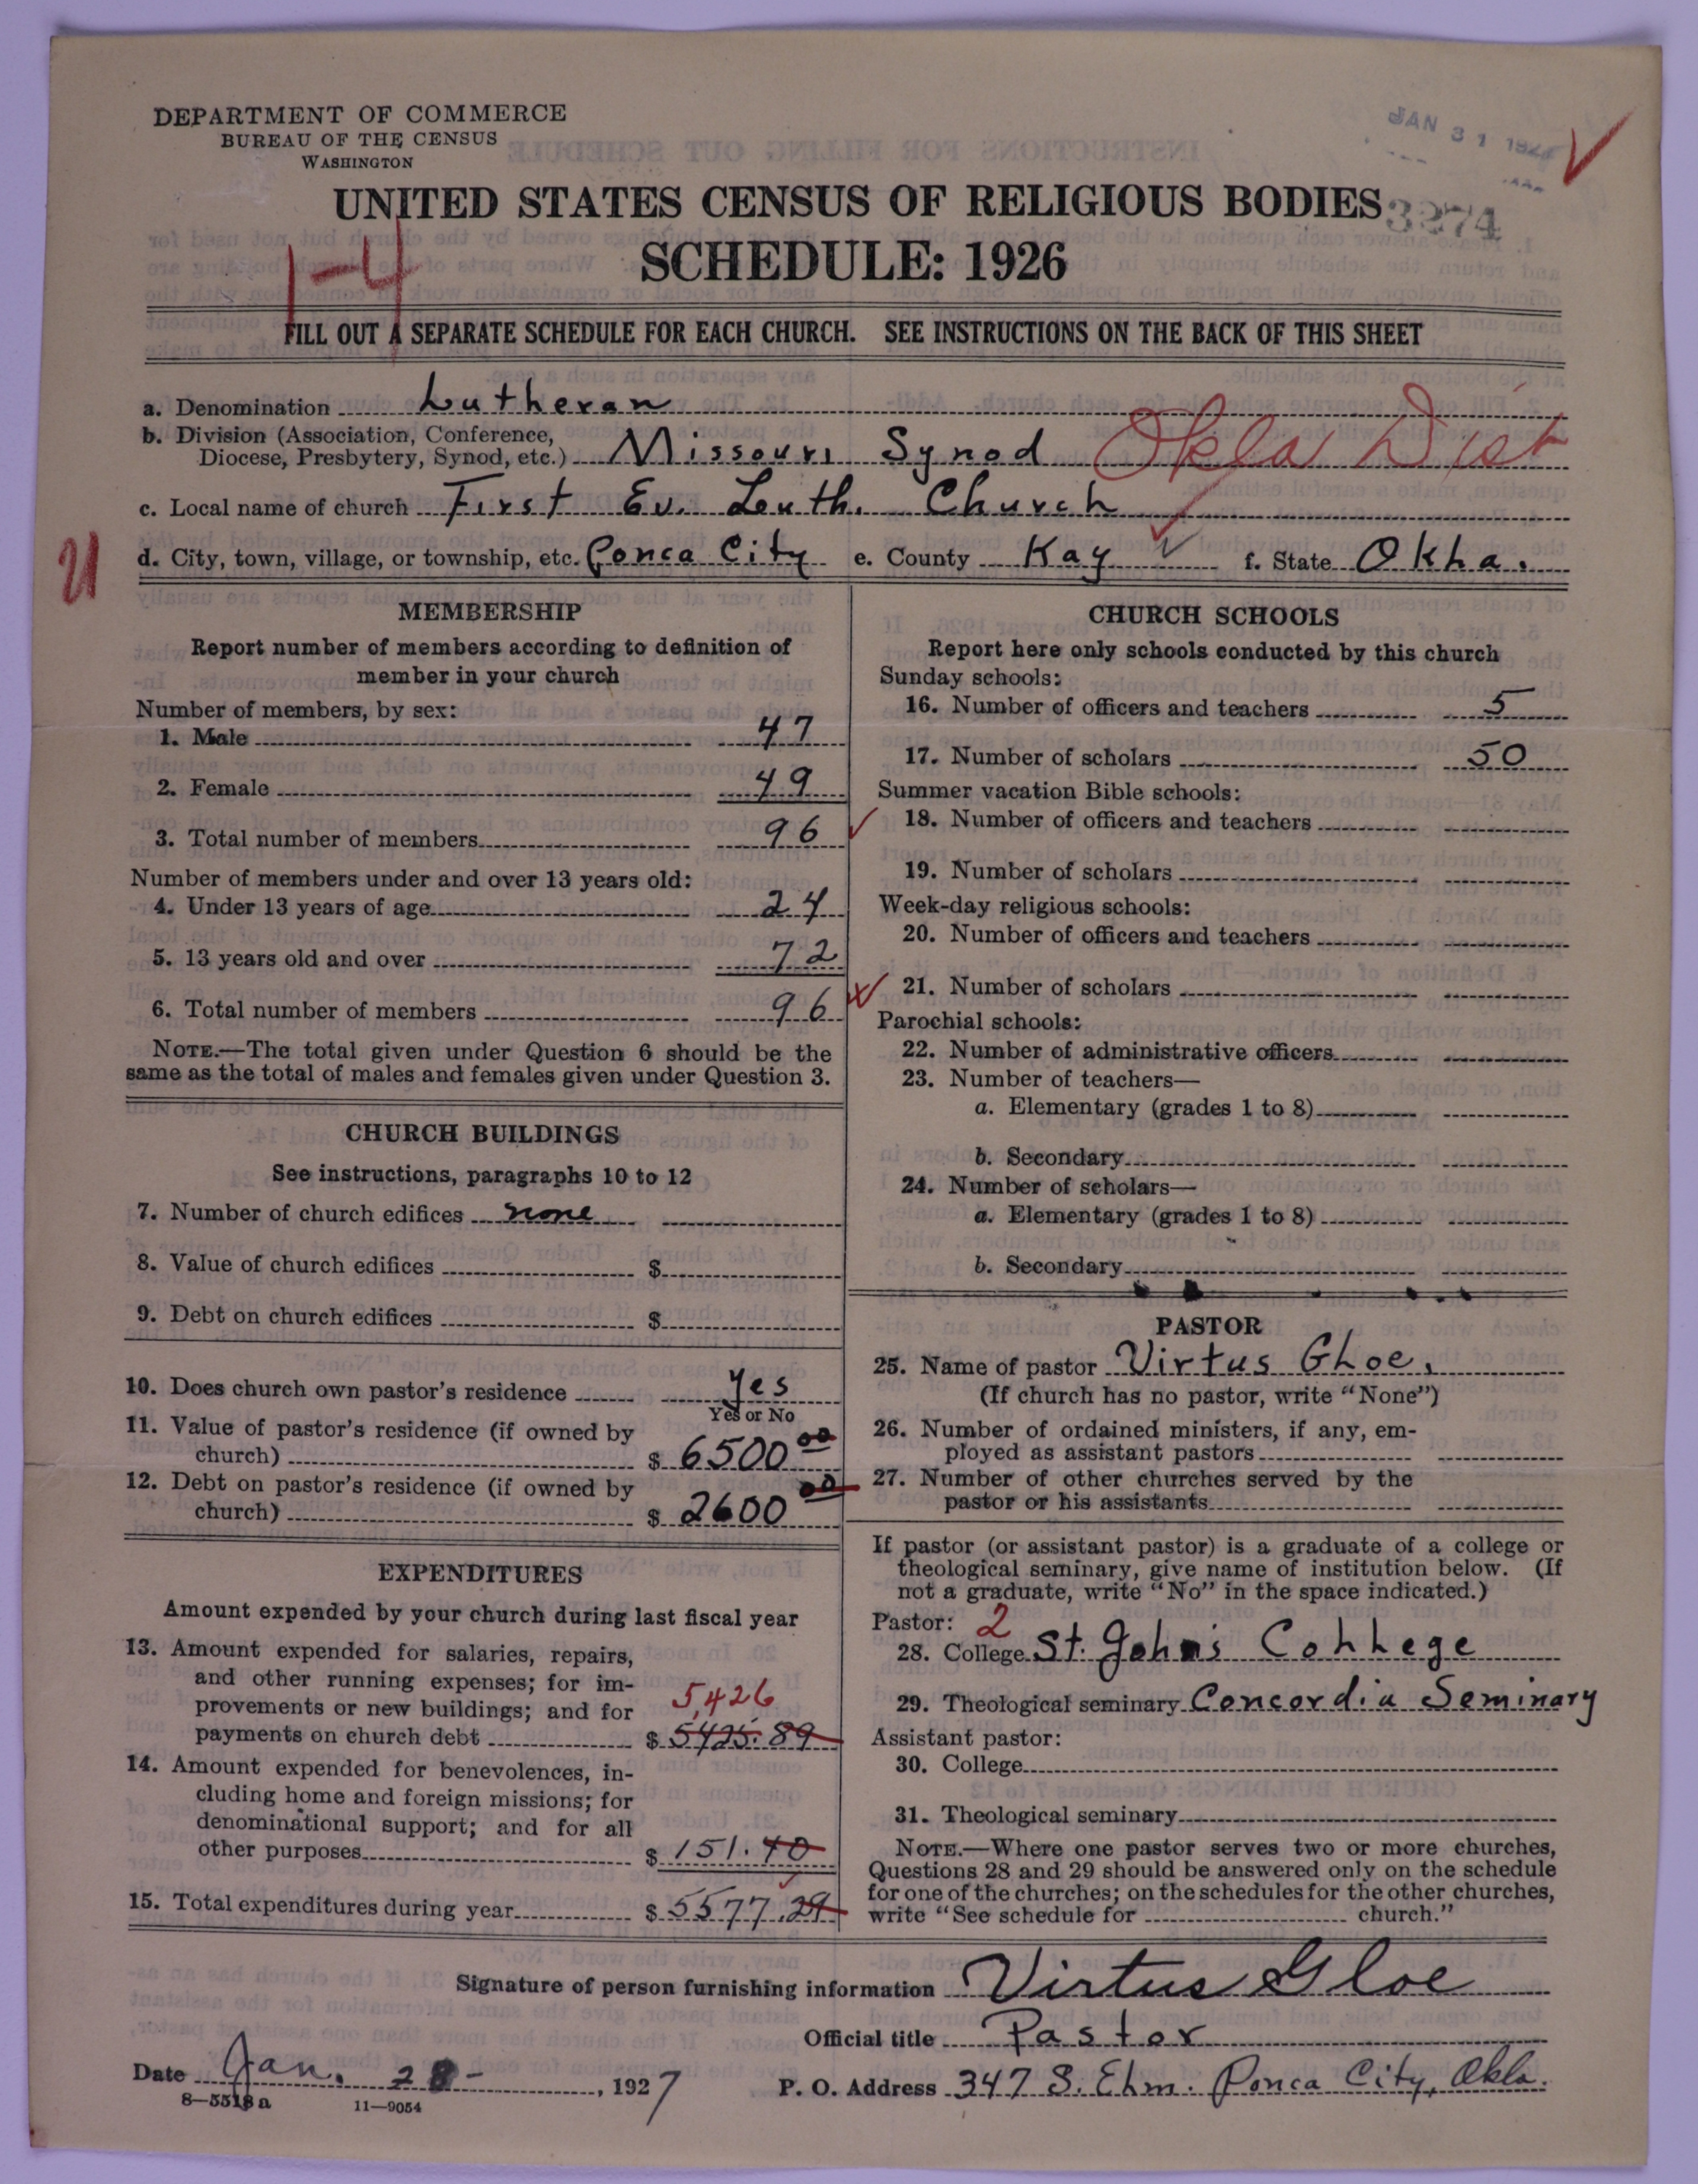 DEPARTMENT OF COMMERCE
BUREAU OF THE CENSUS
WASHINGTON
JAN 31 192
UNITED STATES CENSUS OF RELIGIOUS BODIES
3274
SCHEDULE: 1926
1-4
FILL OUT A SEPARATE SCHEDULE FOR EACH CHURCH. SEE INSTRUCTIONS ON THE BACK OF THIS SHEET
a. Denomination Lutheran
b. Division (Association, Conference, Diocese, Presbytery, Synod, etc.) Missouri Synod Okla Dist
c. Local name of church First Ev. Luth. Church
U
d. City, town, village, or township, etc. Ponca City e. County Kay f. State Okla.
MEMBERSHIP
Report number of members according to definition of
member in your church
Number of members, by sex:
1. Male 47
2. Female 49
3. Total number of members 96
Number of members under and over 13 years old:
4. Under 13 years of age 24
5. 13 years old and over 72
6. Total number of members 96
NOTE.—The total given under Question 6 should be the
same as the total of males and females given under Question 3.
CHURCH BUILDINGS
See instructions, paragraphs 10 to 12
7. Number of church edifices none
8. Value of church edifices $
9. Debt on church edifices $
10. Does church own pastor's residence Yes
Yes or No
11. Value of pastor's residence (if owned by
church) $ 6500 00
12. Debt on pastor's residence (if owned by
church) $ 2600 00
EXPENDITURES
Amount expended by your church during last fiscal year
13. Amount expended for salaries, repairs,
and other running expenses; for im-
provements or new buildings; and for 5,426
payments on church debt $ 5425.89
14. Amount expended for benevolences, in-
cluding home and foreign missions; for
denominational support; and for all
other purposes $ 151.40
15. Total expenditures during year $ 5577.29
CHURCH SCHOOLS
Report here only schools conducted by this church
Sunday schools:
16. Number of officers and teachers 5
17. Number of scholars 50
Summer vacation Bible schools:
18. Number of officers and teachers
19. Number of scholars
Week-day religious schools:
20. Number of officers and teachers
21. Number of scholars
Parochial schools:
22. Number of administrative officers
23. Number of teachers—
a. Elementary (grades 1 to 8)
b. Secondary
24. Number of scholars—
a. Elementary (grades 1 to 8)
b. Secondary
PASTOR
25. Name of pastor Virtus Gloe.
(If church has no pastor, write "None")
26. Number of ordained ministers, if any, em-
ployed as assistant pastors
27. Number of other churches served by the
pastor or his assistants
If pastor (or assistant pastor) is a graduate of a college or
theological seminary, give name of institution below. (If
not a graduate, write "No" in the space indicated.)
Pastor: 2
28. College St. John's College
29. Theological seminary Concordia Seminary
Assistant pastor:
30. College
31. Theological seminary
NOTE.—Where one pastor serves two or more churches,
Questions 28 and 29 should be answered only on the schedule
for one of the churches; on the schedules for the other churches,
write "See schedule for church."
Signature of person furnishing information Virtus Gloe
Official title Pastor
Date Jan. 28- , 1927
P. O. Address 347 S. Elm. Ponca City, Okla.
8—5518 a 11—9054